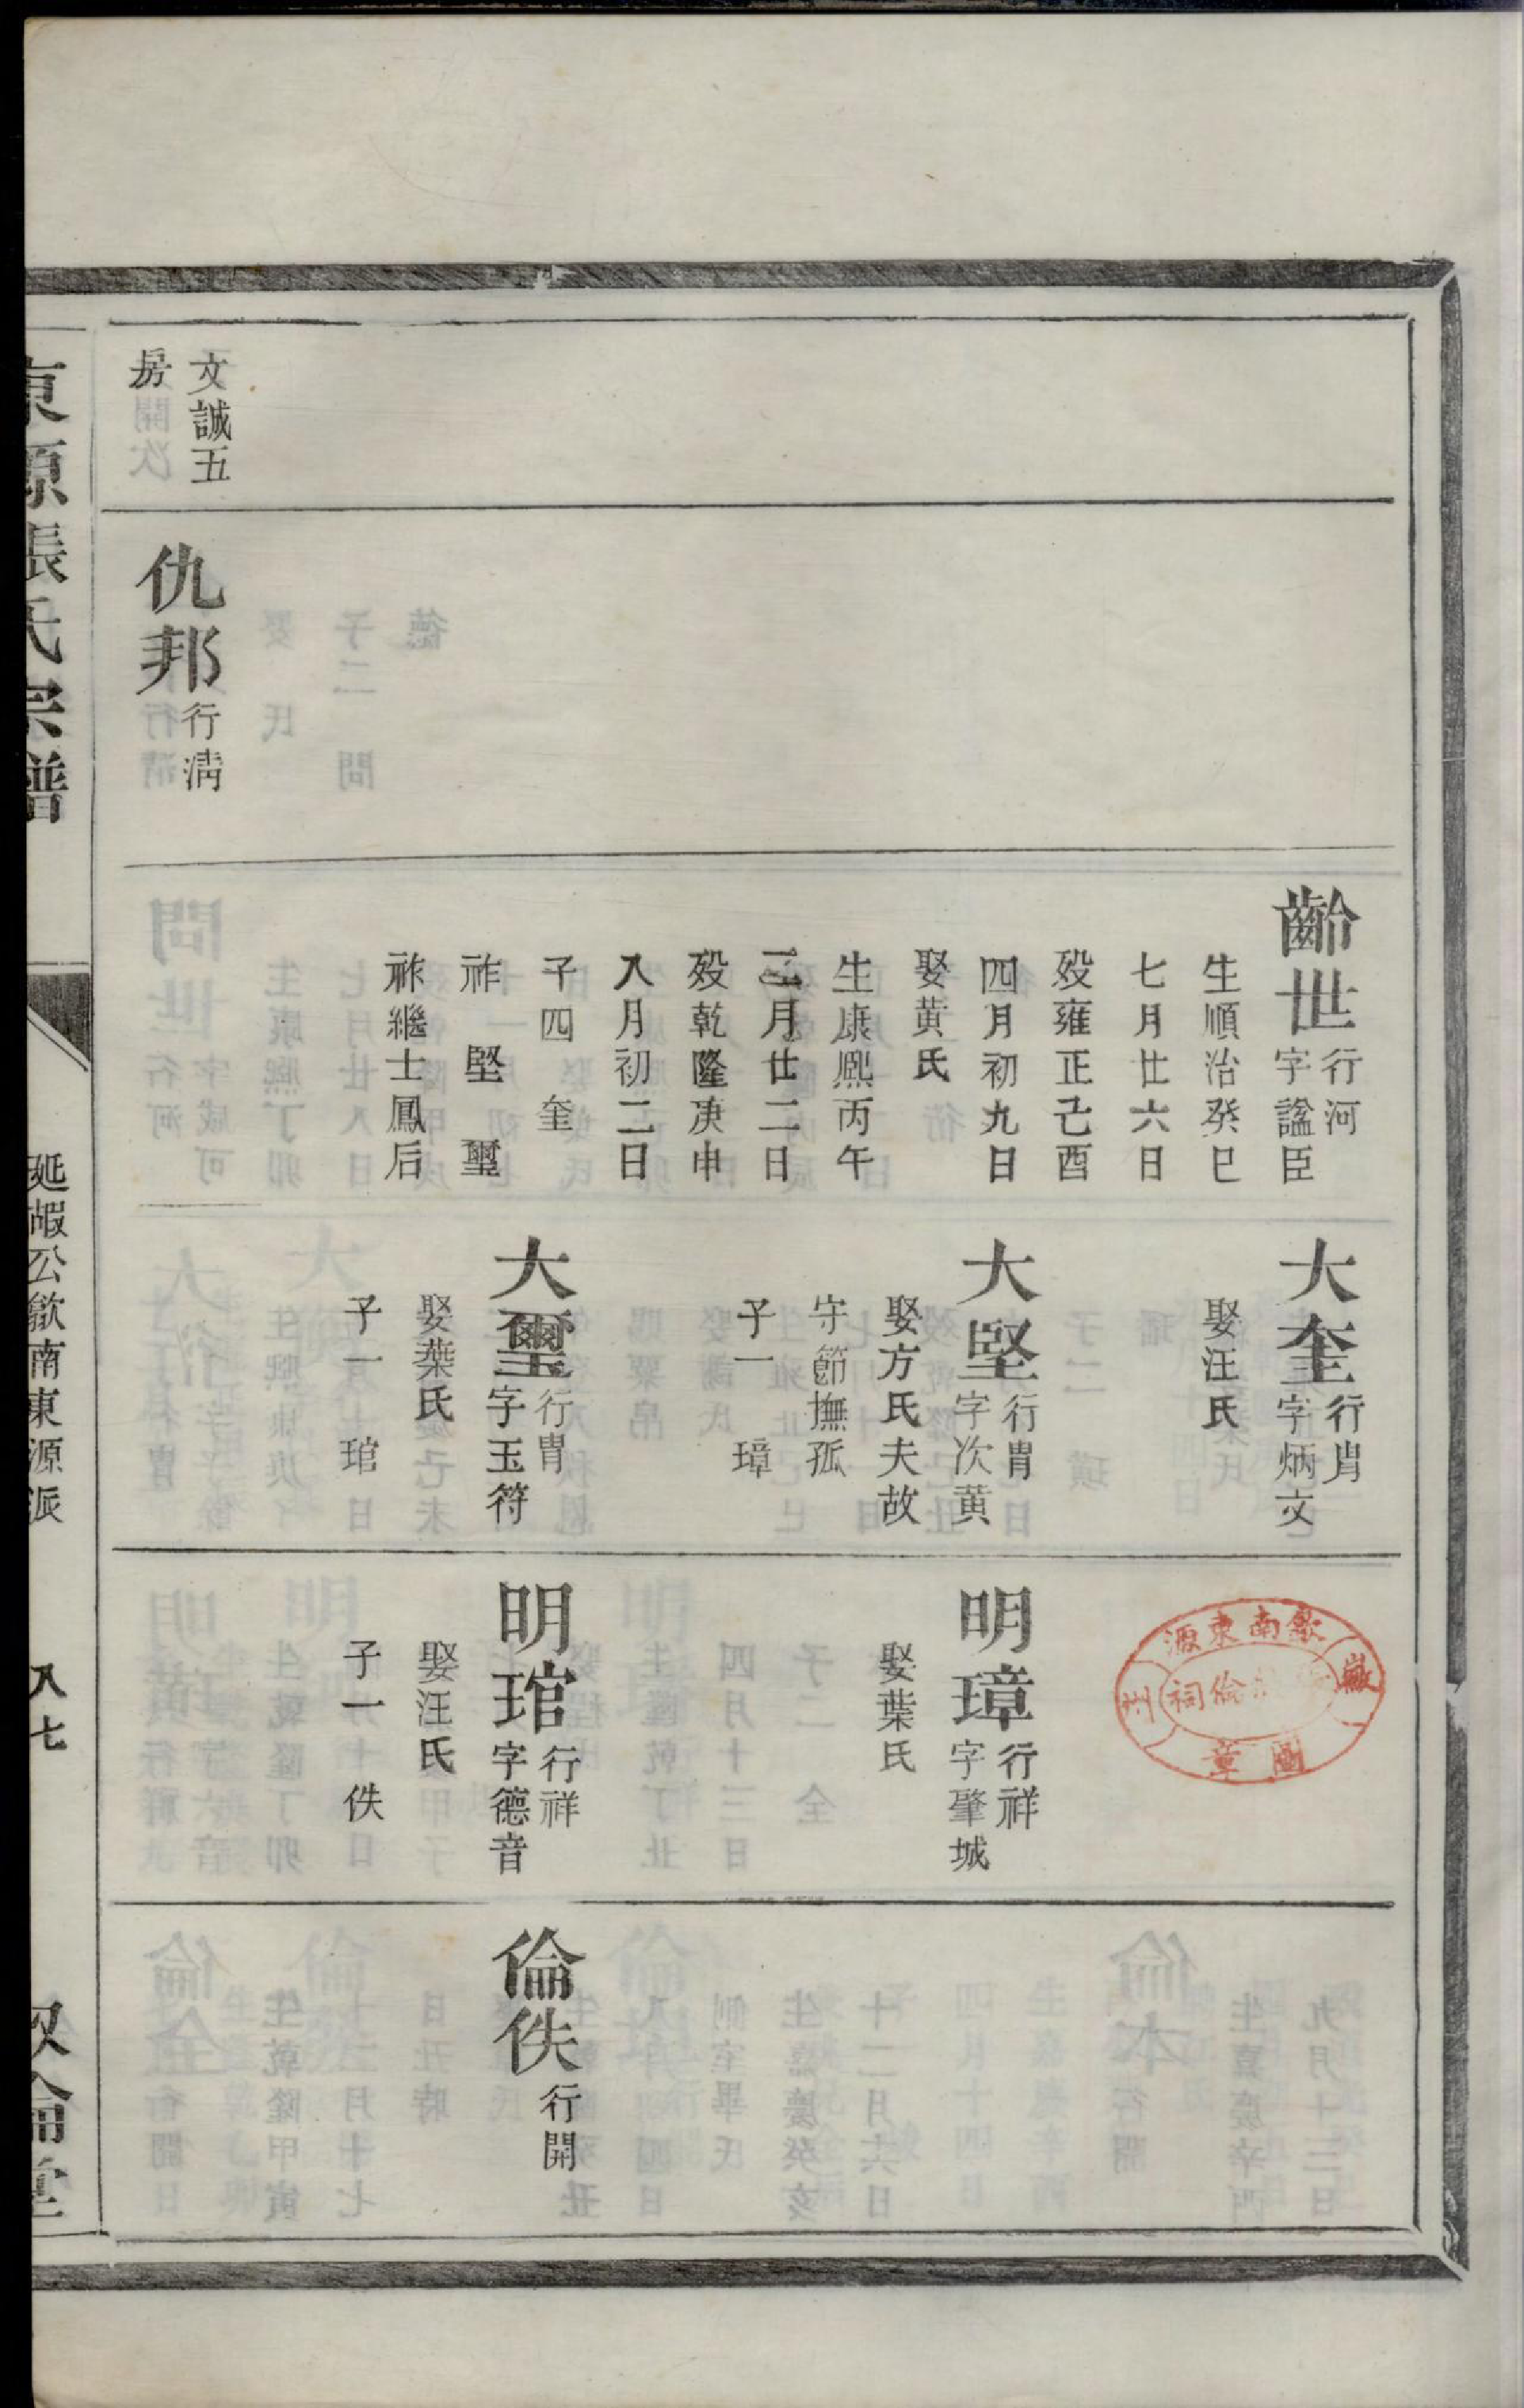 文誠五
房
仇邦行淸
齡世行河
字諡臣
生順治癸巳
七月廿六日
殁雍正己酉
四月初九日
娶黄氏
生康熙丙午
三月廿二日
殁乾隆庚申
八月初二日
子四 奎
祚 堅 璽
祚繼士鳳后
大奎行胄
字炳文
娶汪氏
大堅行胄
字次黄
娶方氏夫故
守節撫孤
子一 璋
大璽行胄
字玉符
娶葉氏
子一 琯
明璋行祥
字肇城
娶葉氏
明琯行祥
字德音
娶汪氏
子一 佚
倫佚行開
東源張氏宗譜
延嘏公歙南東源派
八七
叙倫堂
徽州
歙南東源
倫祠
圖章